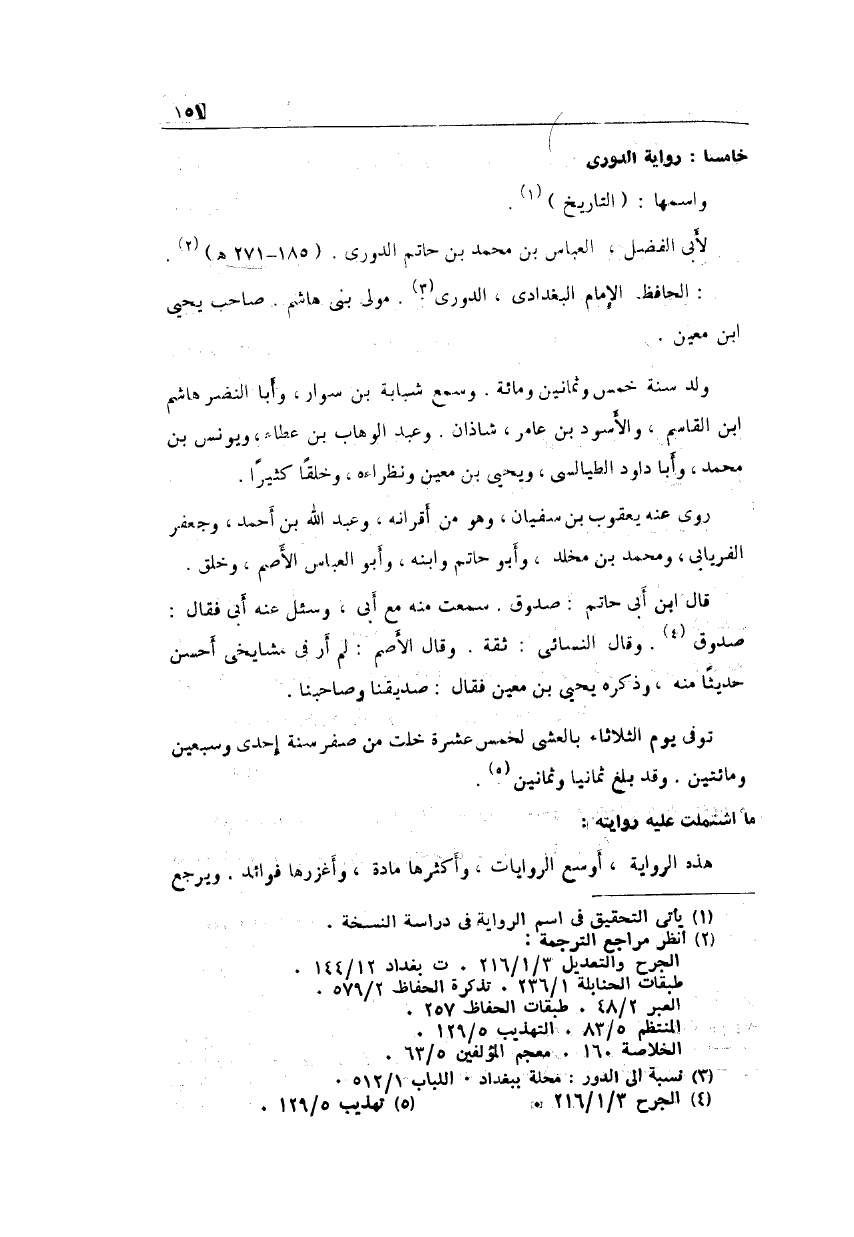 ١٥١
خامسا : رواية الدورى
واسمها : ( التاريخ )(١) .
لأبى الفضل ، العباس بن محمد بن حاتم الدورى . ( ١٨٥-٢٧١ هـ )(٢) .
: الحافظ الإمام البغدادى ، الدورى(٣) . مولى بنى هاشم . صاحب يحيى
ابن معين .
ولد سنة خمس وثمانين ومائة . وسمع شبابة بن سوار ، وأبا النضر هاشم
ابن القاسم ، والأسود بن عامر ، شاذان . وعبد الوهاب بن عطاء ، ويونس بن
محمد ، وأبا داود الطيالسى ، ويحيى بن معين ونظراءه ، وخلقًا كثيرًا .
روى عنه يعقوب بن سفيان ، وهو من أقرانه ، وعبد الله بن أحمد ، وجعفر
الفريابى ، ومحمد بن مخلد ، وأبو حاتم وابنه ، وأبو العباس الأصم ، وخلق .
قال ابن أبى حاتم : صدوق . سمعت منه مع أبى ، وسئل عنه أبى فقال :
صدوق(٤) . وقال النسائى : ثقة . وقال الأصم : لم أر فى مشايخى أحسن
حديثًا منه ، وذكره يحيى بن معين فقال : صديقنا وصاحبنا .
توفى يوم الثلاثاء بالعشى لخمس عشرة خلت من صفر سنة إحدى وسبعين
ومائتين . وقد بلغ ثمانيا وثمانين(٥) .
ما اشتملت عليه روايته :
هذه الرواية ، أوسع الروايات ، وأكثرها مادة ، وأغزرها فوائد . ويرجع
(١) يأتى التحقيق فى اسم الرواية فى دراسة النسخة .
(٢) انظر مراجع الترجمة :
الجرح والتعديل ٢١٦/١/٣ . ت بغداد ١٤٤/١٢ .
طبقات الحنابلة ٢٣٦/١ . تذكرة الحفاظ ٥٧٩/٢ .
العبر ٤٨/٢ . طبقات الحفاظ ٢٥٧ .
المنتظم ٨٣/٥ . التهذيب ١٢٩/٥ .
الخلاصة ١٦٠ . معجم المؤلفين ٦٣/٥ .
(٣) نسبة الى الدور : محلة ببغداد . اللباب ٥١٢/١ .
(٤) الجرح ٢١٦/١/٣ (٥) تهذيب ١٢٩/٥ .